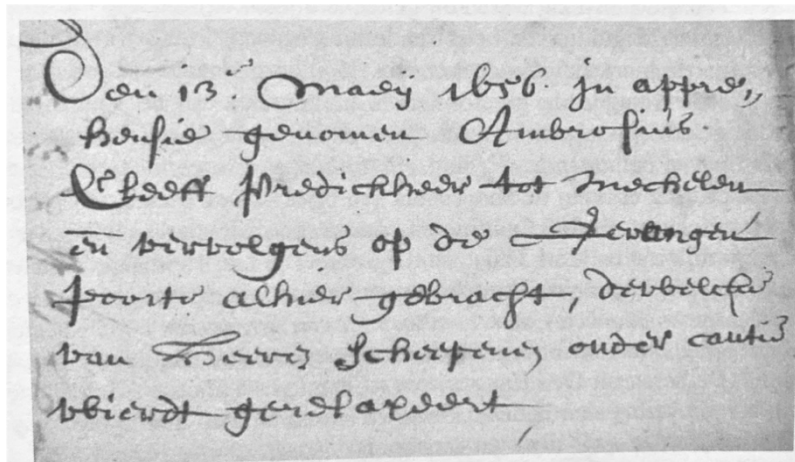 Den 13.e Maeij 1656. In appre„
hensie genomen Ambrosius.
Cleeff Predickheer tot Mechelen
en̄ vervolgens op de Gevangen
poorte alhier gebracht, dewelcke
van Heeren Scheepenen onder cautie
wierdt gerelaxeert